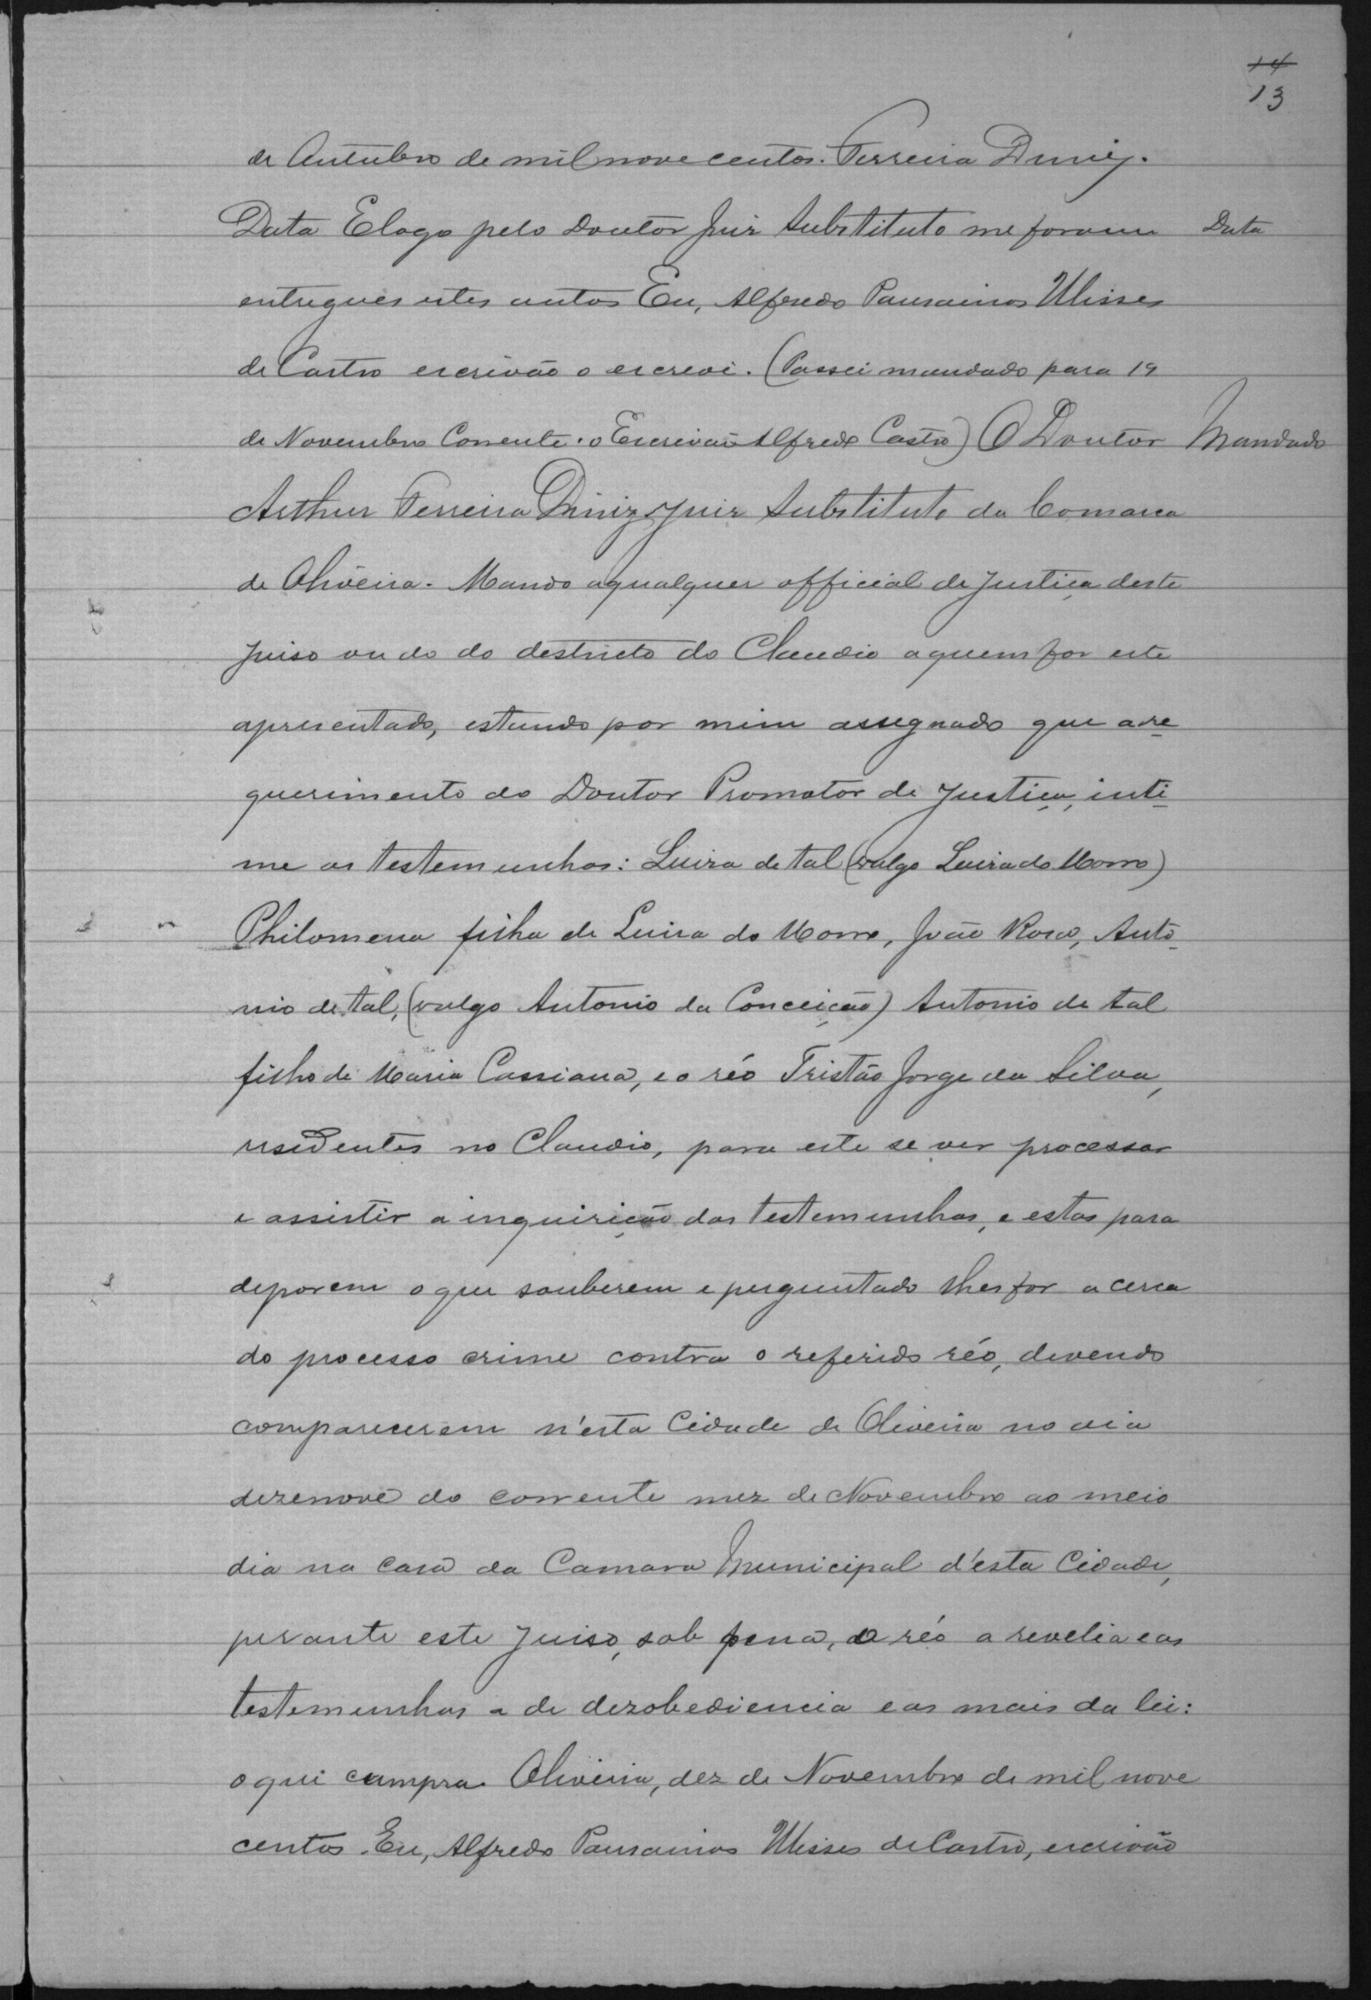 14
13
de Outubro de mil nove centos. Ferreira Diniz.
Data E logo pelo Doutor Juiz Substituto me foram Data
entregues estes autos Eu, Alfredo Pausanias Ulisses
de Castro escrivão o escrevi. (Passei mandado para 19
de Novembro Corrente. o Escrivão Alfredo Castro) O Doutor Mandado
Arthur Ferreira Diniz Juiz Substituto da Comarca
de Oliveira. Mando a qualquer official de Justiça deste
juiso ou do do destricto do Claudio a quem for este
apresentado, estando por mim assegnado que a re-
querimento do Doutor Promotor de Justiça, inti-
me as testemunhas: Luiza de tal (vulgo Luiza do Morro)
Philomena filha de Luiza do Morro, João Rosa, Anto-
nio de tal, (vulgo Antonio da Conceição) Antonio de tal
filho de Maria Cassiana, e o réo Tristão Jorge da Silva,
residentes no Claudio, para este se ver processar
e assistir a inquirição das testemunhas, e estas para
deporem o que souberem e perguntado lhes for a cerca
do processo crime contra o referido réo, devendo
comparecerem n'esta Cidade de Oliveira no dia
dezenove do corrente mez de Novembro ao meio
dia na casa da Camara Municipal d'esta Cidade,
perante este Juiso, sob pena, o réo a revelia e as
testemunhas a de dezobediencia e as mais da lei:
o que cumpra. Oliveira, dez de Novembro de mil nove
centos. Eu, Alfredo Pausanias Ulisses de Castro, escrivão